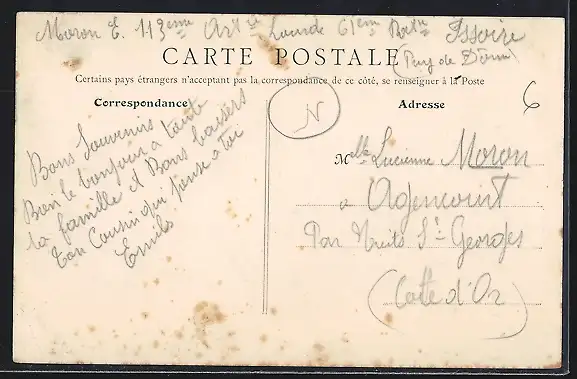 Moron E. 113eme Art ie Lourde 61em Btrie Issoire
(Puy de Dôme)
CARTE POSTALE
Certains pays étrangers n'acceptant pas la correspondance de ce côté, se renseigner à la Poste
Correspondance
Adresse
N
6
Bons Souvenirs
Bien le bonjour a toute
la famille et Bons baisers
Ton Cousin qui pense a toi
Emile
Melle Lucienne Moron
a Agencourt
Par Nuits St-Georges
(Cotte d'Or)